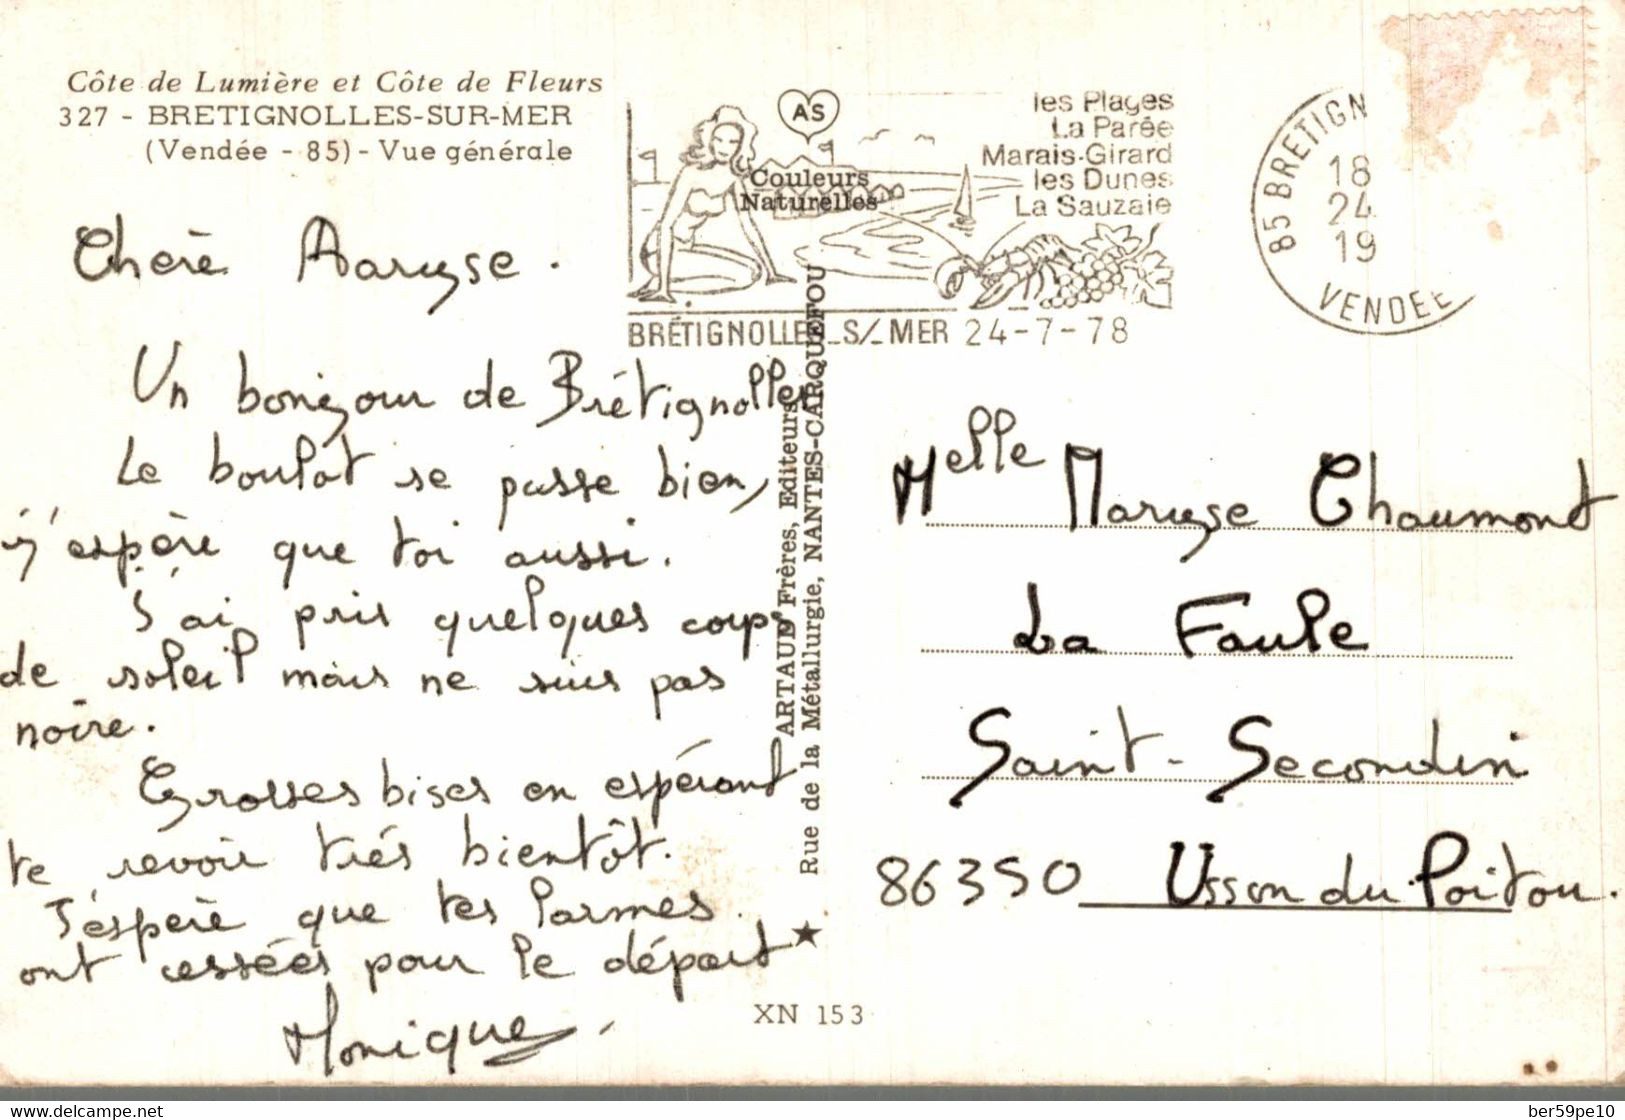 Côte de Lumière et Côte de Fleurs
327 - BRETIGNOLLES-SUR-MER
(Vendée - 85) - Vue générale
AS
Couleurs
Naturelles
les Plages
La Parée
Marais-Girard
les Dunes
La Sauzaie
BRÉTIGNOLLES_S/_MER 24-7-78
85 BRETIGN
18
24
19
VENDEE
Chère Maryse.
Un bonjour de Brétignolles
Le boulot se passe bien,
j'espère que toi aussi.
J'ai pris quelques coups
de soleil mais ne suis pas
noire.
Grosses bises en espérant
te revoir très bientôt.
J'espère que tes larmes
ont cessées pour le départ
Monique
ARTAUD Frères, Editeurs
Rue de la Métallurgie, NANTES-CARQUEFOU
Melle Maryse Chaumont
La Faule
Saint-Secondin
86350 Usson du Poitou.
XN 153
https://www.delcampe.net
ber59pe10